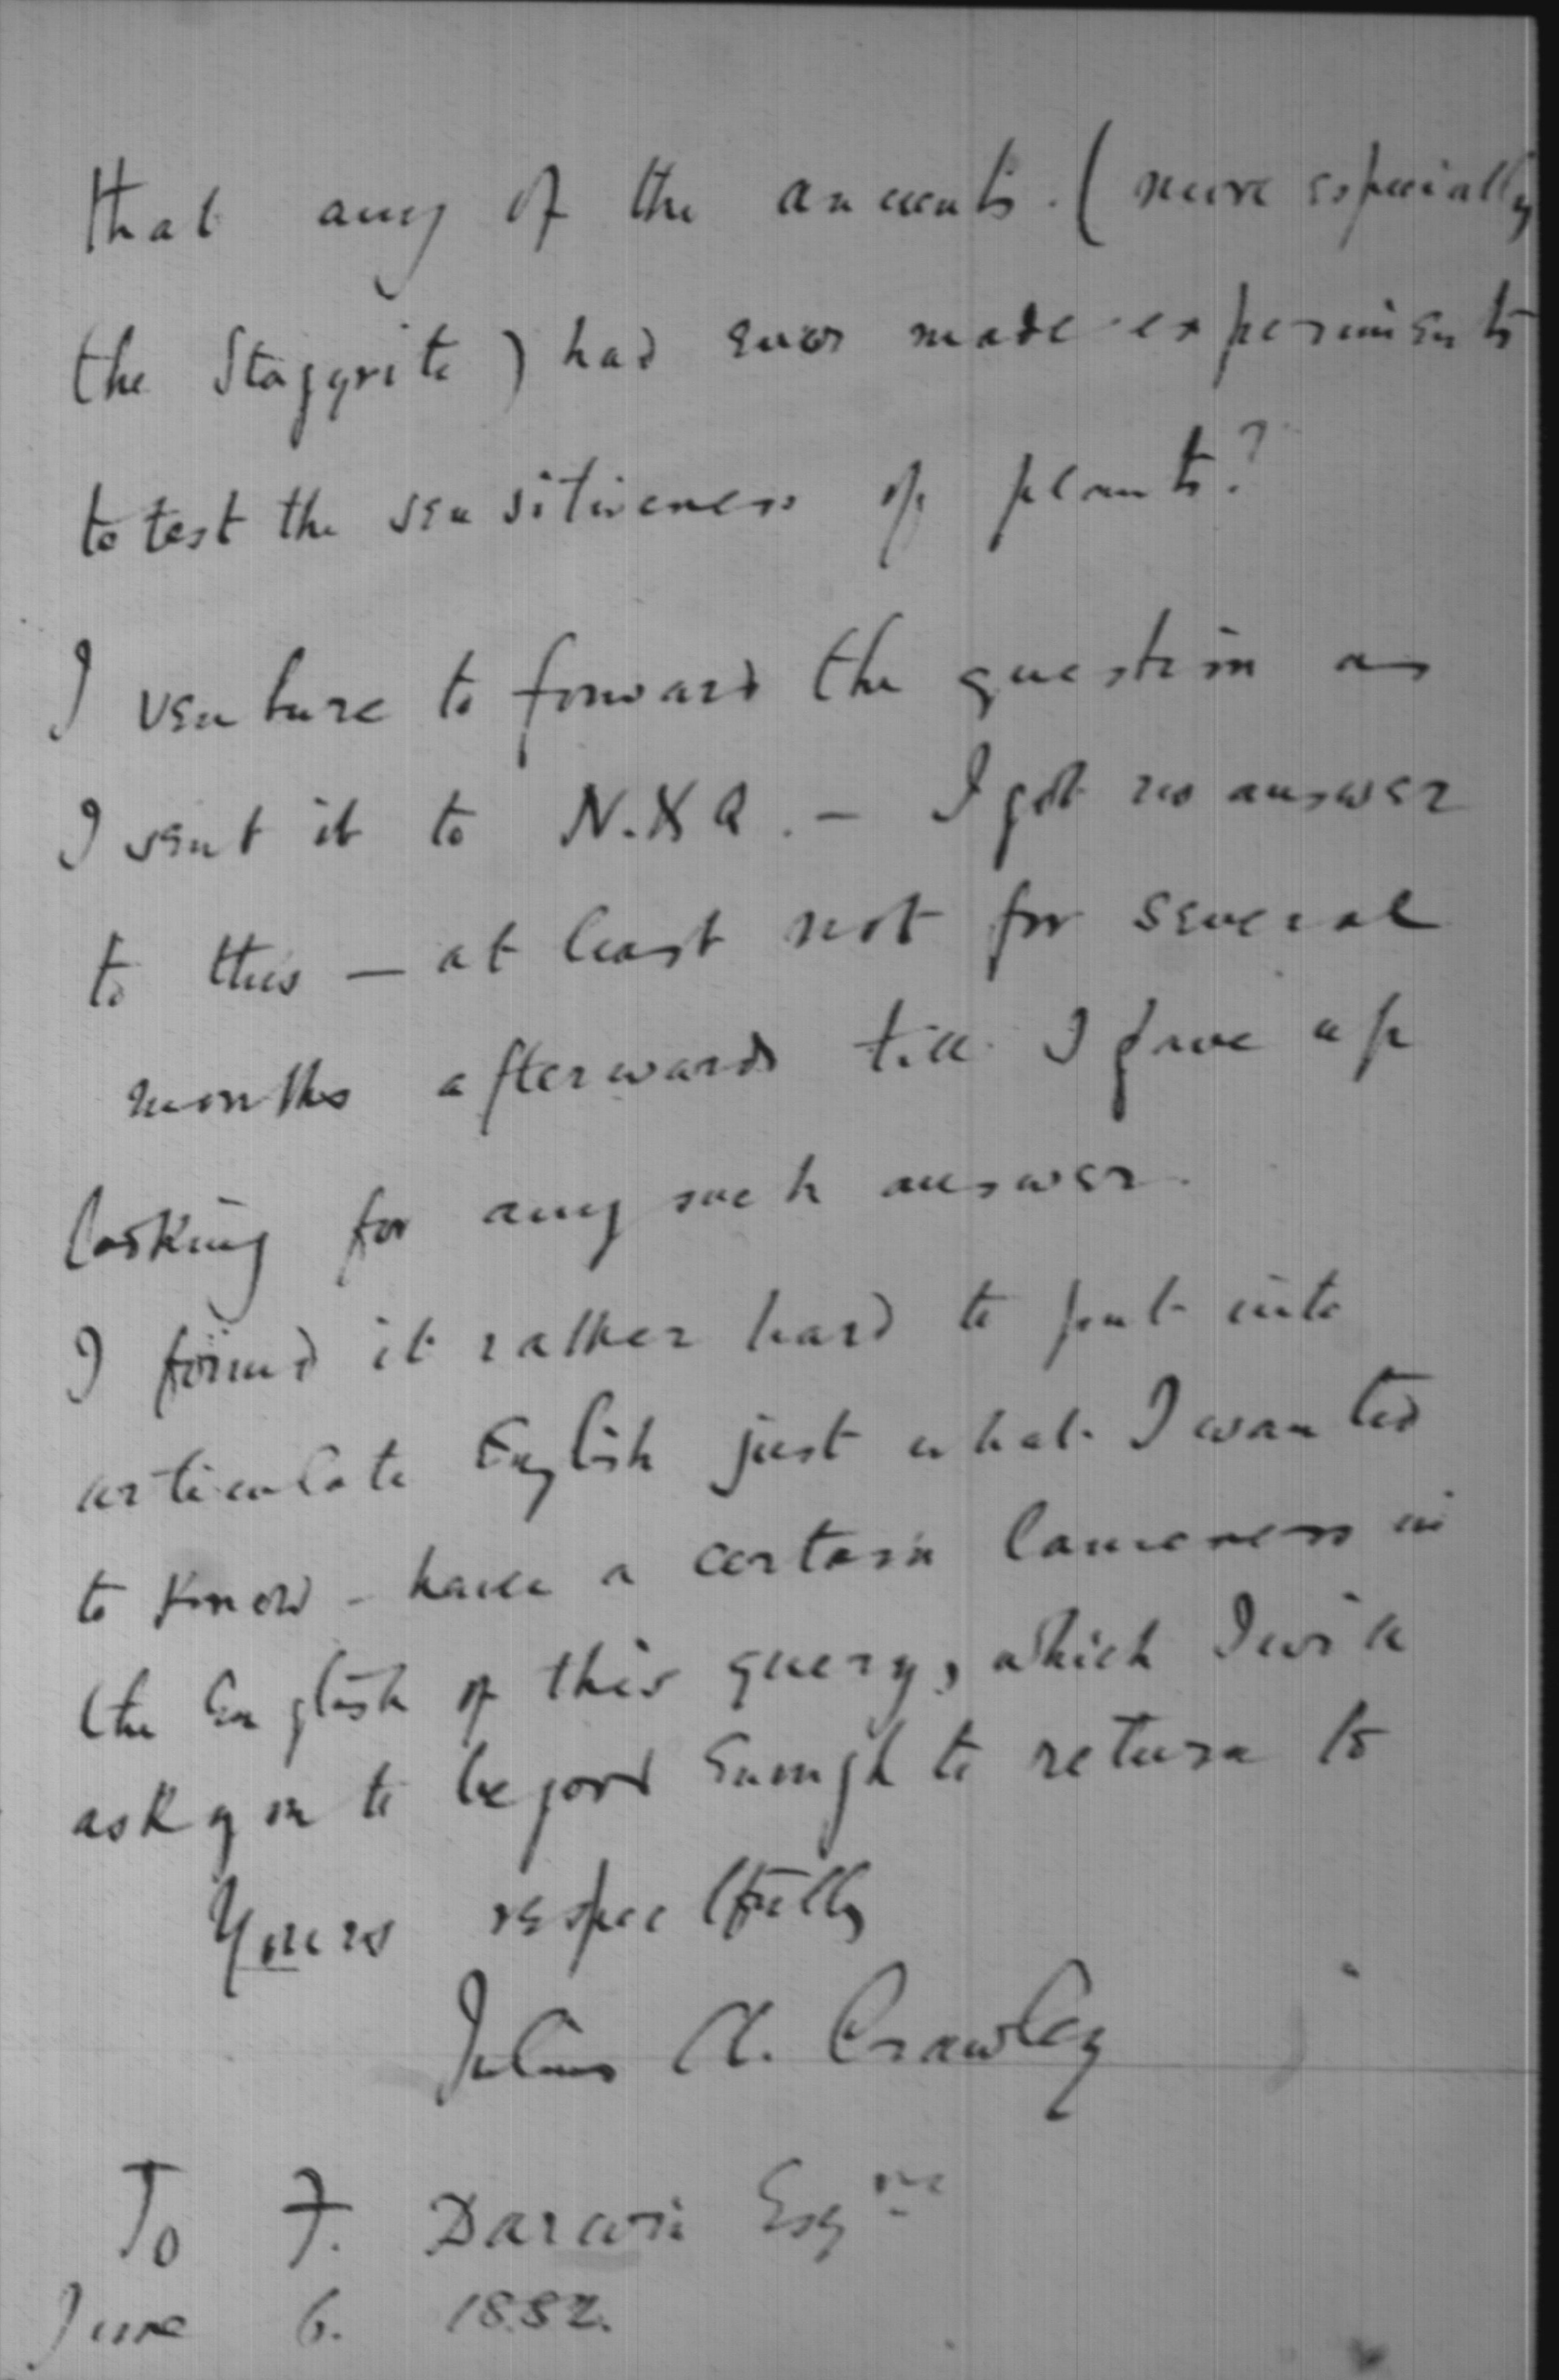 that any of the ancients. (more especially
the Stagyrite) had ever made experiments
to test the sensitiveness of plants?
I venture to forward the question as
I sent it to N. & Q. — I got no answer
to this — at least not for several
months afterwards till I gave up
looking for any such answer.
I found it rather hard to put into
articulate English just what I wanted
to know - hence a certain lameness in
the English of this query, which I will
ask you to be good enough to return to
Yours respectfully
Julius A. Crawley
To F. Darwin Esqre
June 6. 1882.